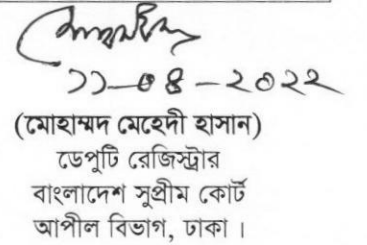 ১১-০৪-২০২২
(মোহাম্মদ মেহেদী হাসান)
ডেপুটি রেজিস্ট্রার
বাংলাদেশ সুপ্রীম কোর্ট
আপীল বিভাগ, ঢাকা ।